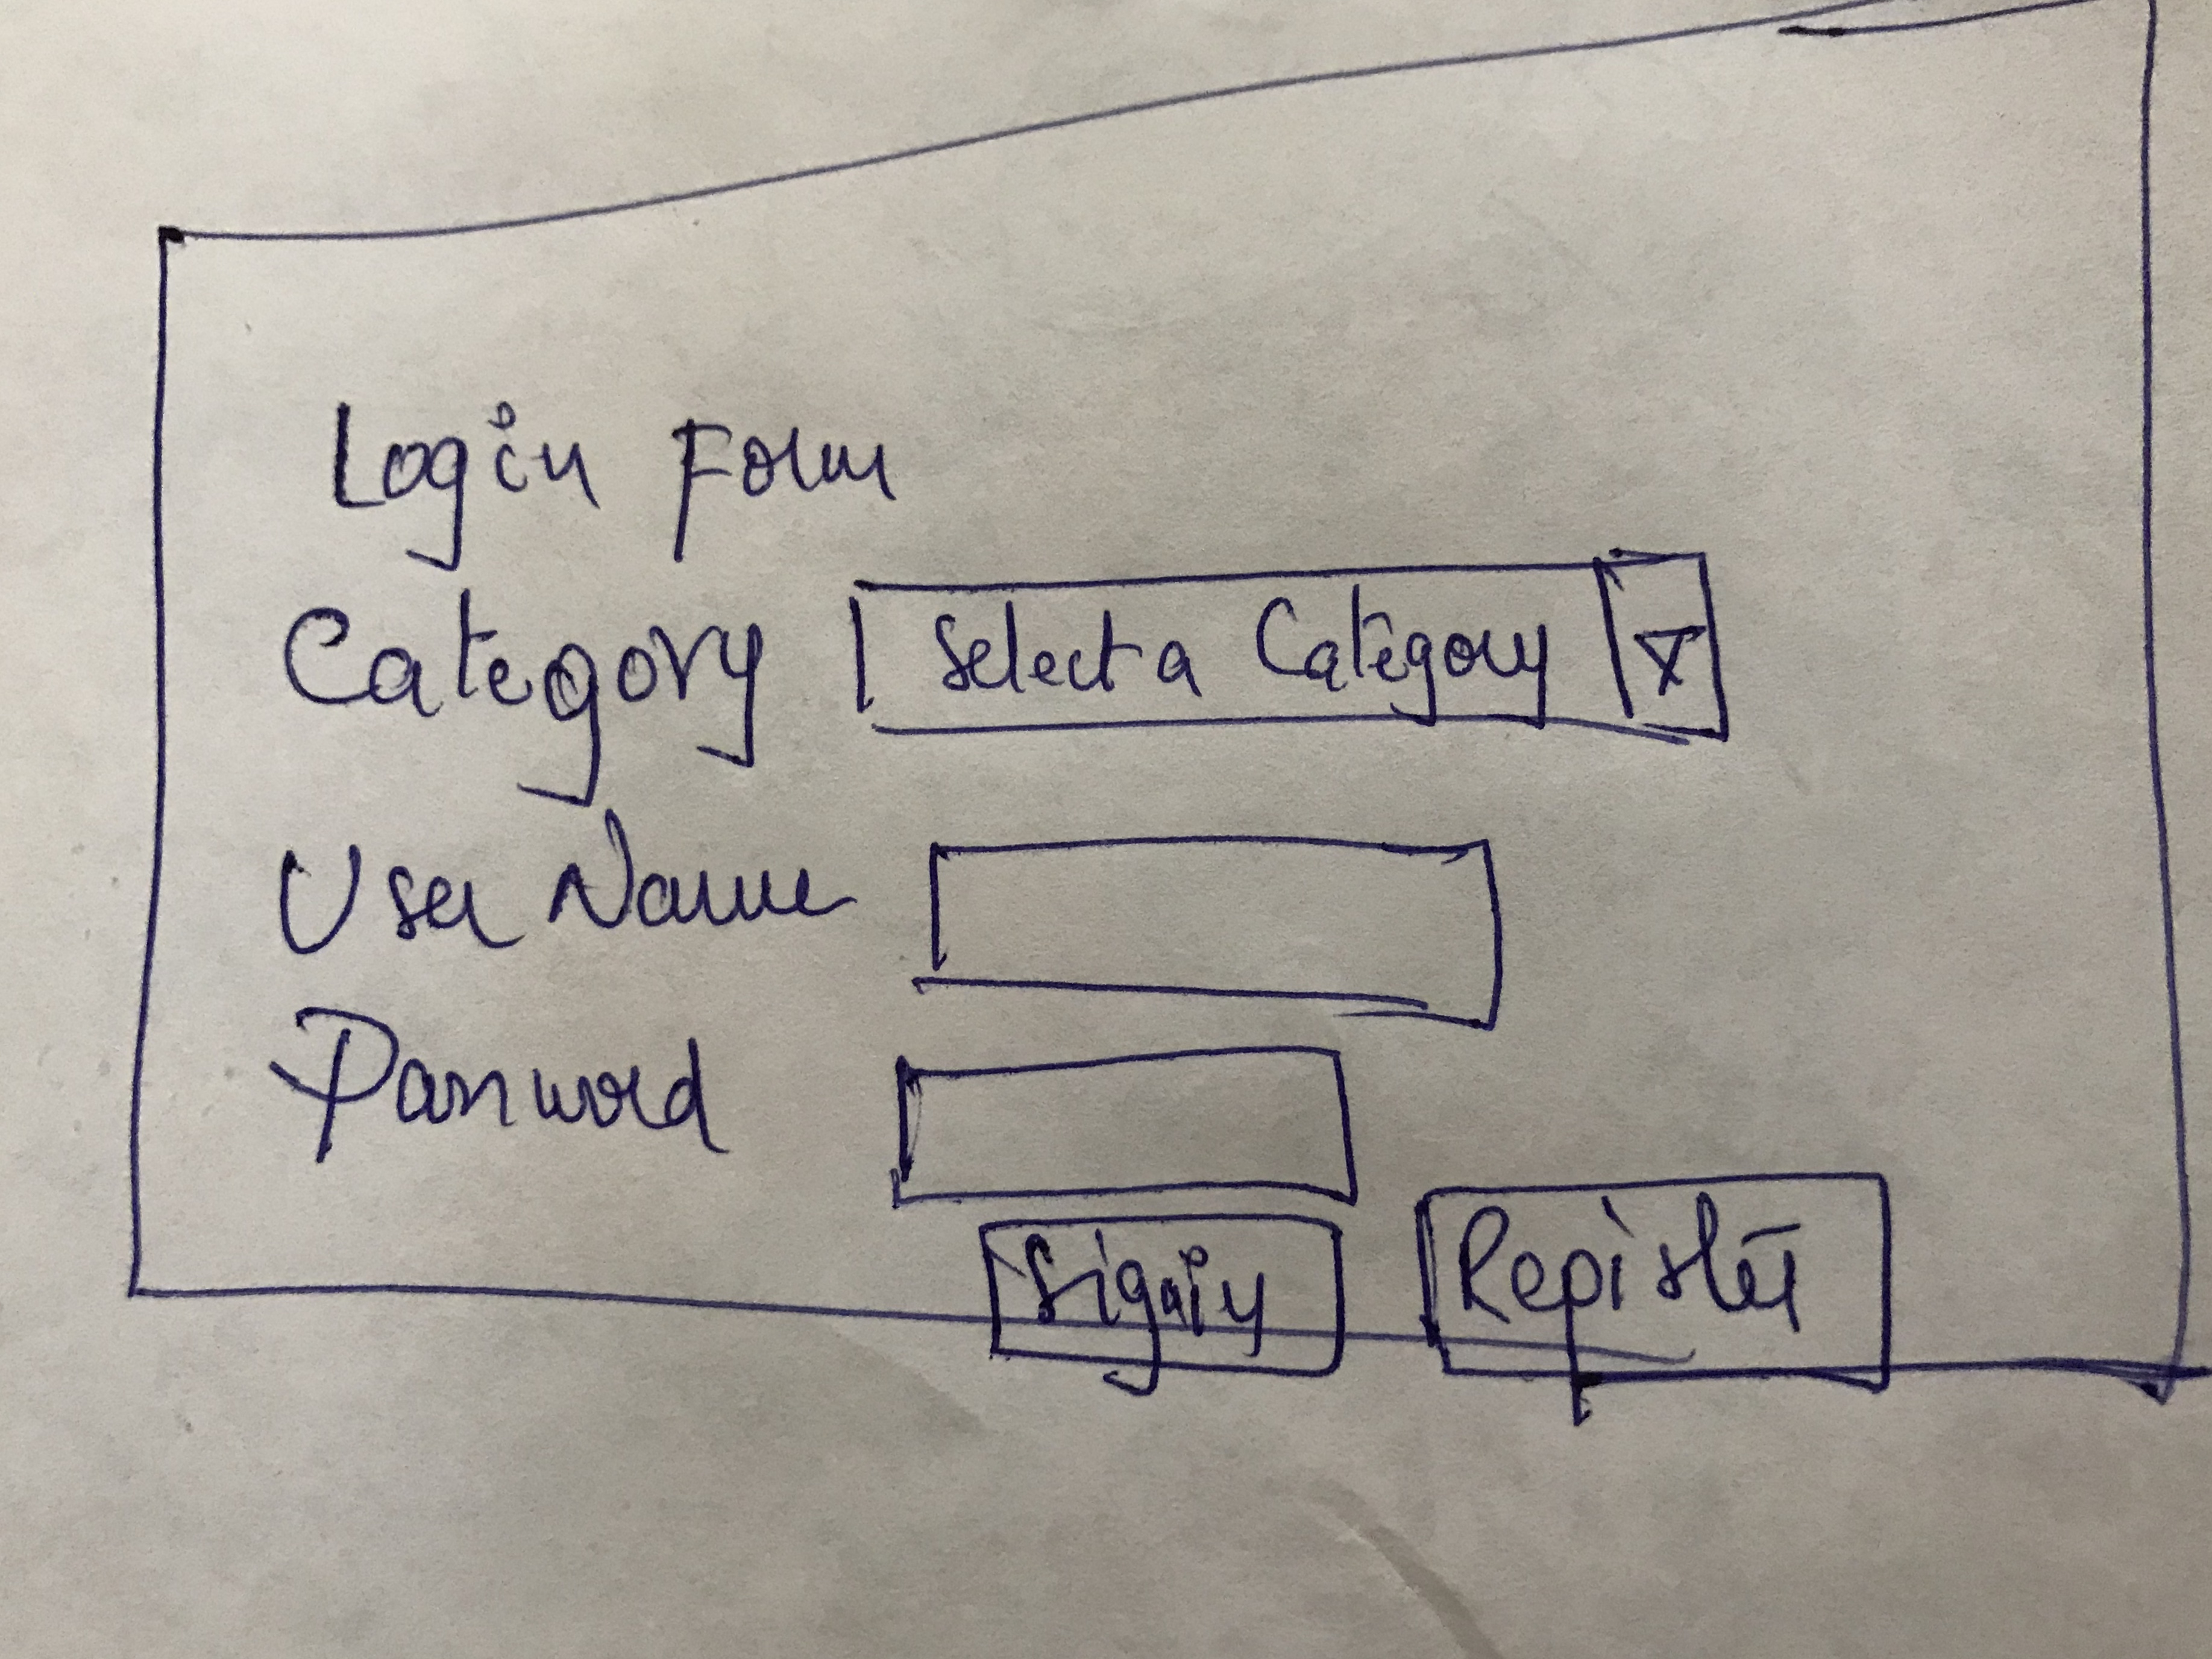 Login Form
Category Select a Category
User Name
Password
Signin Register